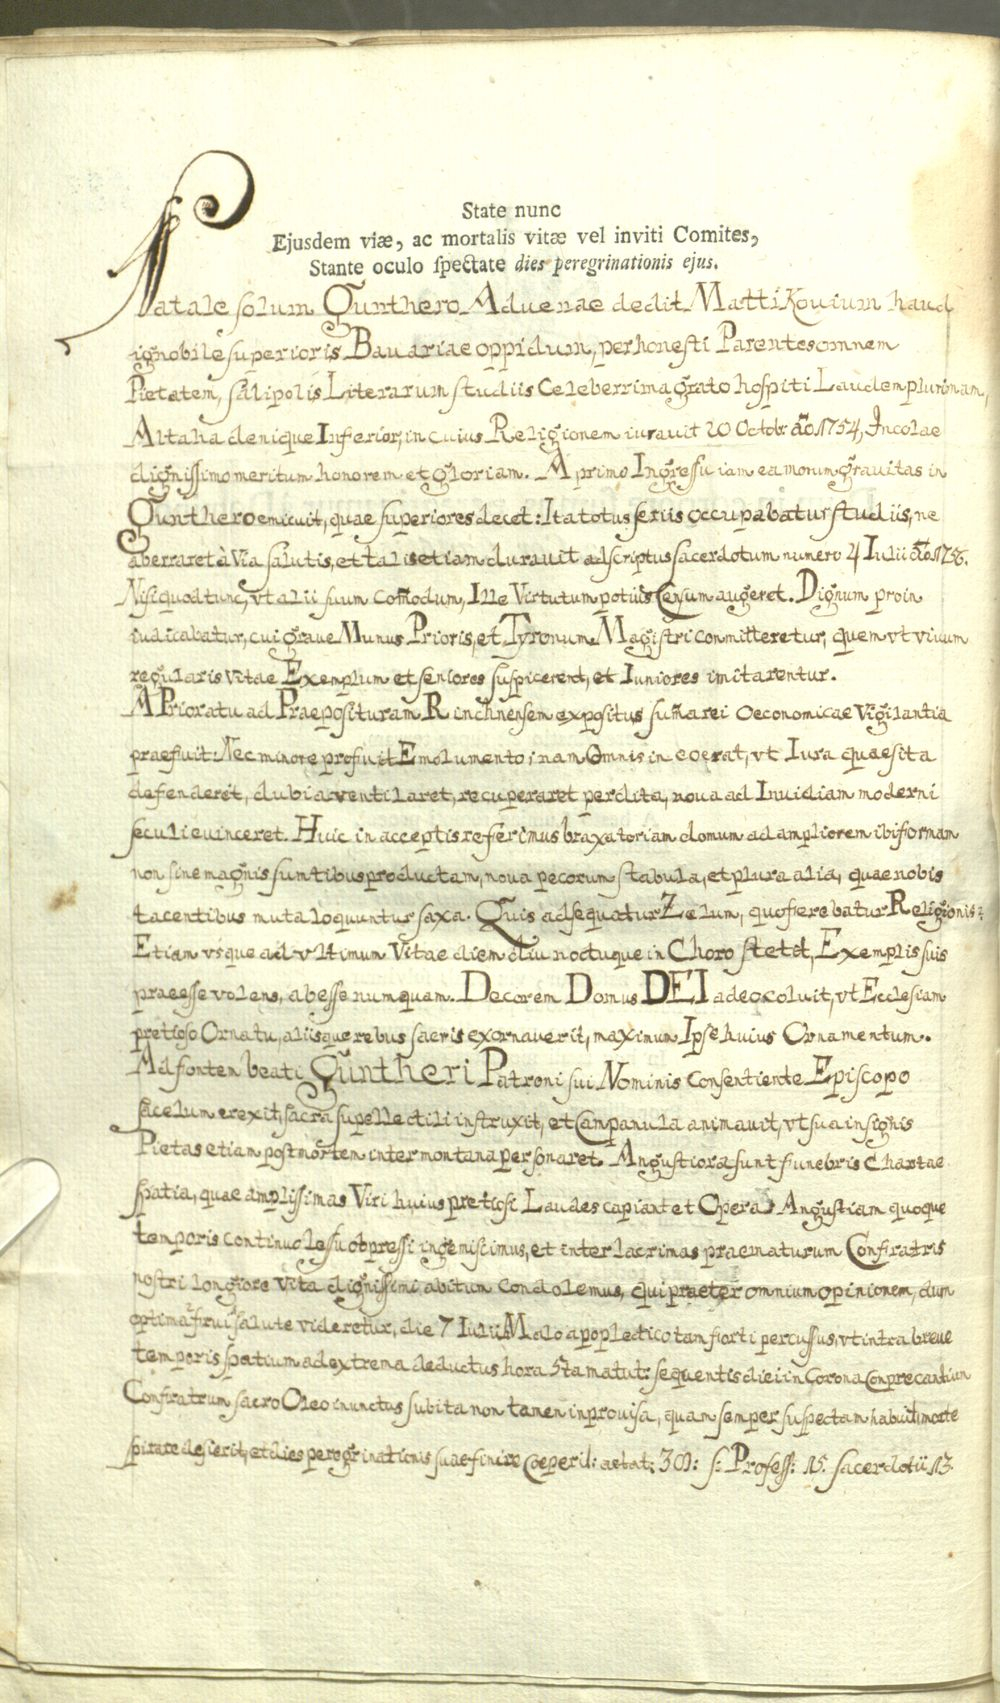 State nunc
Ejusdem viæ, ac mortalis vitæ vel inviti Comites,
Stante oculo ſpectate dies peregrinationis ejus.
Natale solum Gunthero Advenae dedit Mattikovium haud
ignobile superioris Bavariae oppidum, perhonesti Parentes omnem
Pietatem, Salipolis Literarum studiis Celeberrima grato hospiti Laudem plurimam,
Altaha denique Inferior, in cuius Religionem iuravit 20 Octobr. ão 1754, Incolae
dignissimo meritum honorem et gloriam. A primo Ingressu iam ea morum gravitas in
Gunthero emicuit, quae superiores decet: Ita totus seriis occupabatur studiis, ne
aberraret à Via salutis, et talis etiam duravit adscriptus sacerdotum numero 4 Iulii ão 1756.
Nisi quod tunc, vt alii suum com̄odum, Ille Virtutum potius Censum augeret. Dignum proin
iudicabatur, cui grave Munus Prioris, et Tyronum Magistri committeretur, quem vt vivum
regularis Vitae Exemplum et seniores suspicerent, et Iuniores imitarentur.
A Prioratu ad Praeposituram Rinchnensem expositus sum̄a rei oeconomicae Vigilantia
praefuit: Nec minore profuit Emolumento; nam Omnis in eo erat, vt Iura quaesita
defenderet, dubia ventilaret, recuperaret perdita, nova ad Invidiam moderni
seculi evinceret. Huic in acceptis referimus braxatoriam domum ad ampliorem ibi formam
non sine magnis sumtibus productam, nova pecorum stabula, et plura alia, quae nobis
tacentibus muta loquuntur saxa. Quis adsequatur Zelum, quo ferebatur Religionis?
Etiam vsque ad vltimum Vitae diem diu noctuque in Choro stetit, Exemplis suis
praeesse volens, abesse numquam. Decorem Domus DEI adeo coluit, vt Ecclesiam
pretioso Ornatu, aliisque rebus sacris exornaverit, maximum Ipse huius Ornamentum.
Ad fontem beati Guntheri Patroni sui Nominis Consentiente Episcopo
sacelum erexit, sacra supellectili instruxit, et Campanula animavit, vt sua insignis
Pietas etiam post mortem inter montana personaret. Angustiora sunt funebris Chartae
spatia, quae amplissimas Viri huius pretiosi Laudes capiant et Opera. Angustiam quoque
temporis continuo lessu obpressi ingemiscimus, et inter lacrimas praematurum Confratris
nostri longiore Vita dignissimi abitum condolemus, qui praeter omnium opinionem, dum
optima frui salute videretur, die 7 Iulii Malo apoplectico tam forti percussus, vt intra breve
temporis spatium ad extrema deductus hora 5ta matut: sequentis diei in Corona Comprecantium
Confratrum sacro Oleo inunctus subita non tamen inprovisa, quam semper suspectam habuit, morte
spirare desierit, et dies peregrinationis suae finire coeperit: aetat: 39: s: Profess: 15. sacerdotii 13.